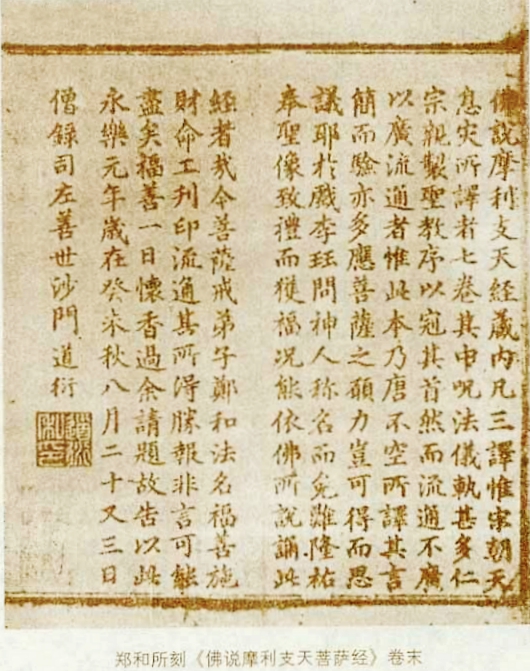 佛說摩利支天經藏內凡三譯惟宋朝天
息灾所譯者七卷其中呪法儀軌甚多仁
宗親製聖教序以冠其首然而流通不廣
以廣流通者惟此本乃唐不空所譯其言
簡而驗亦多應菩薩之願力豈可得而思
議耶於戲李珏問神人称名而免難隆祐
奉聖像致禮而獲福况能依佛所說誦此
經者哉今菩薩戒弟子鄭和法名福善施
財命工刊印流通其所得勝報非言可能
盡矣福善一日懷香過余請題故告以此
永樂元年歲在癸未秋八月二十又三日
僧錄司左善世沙門 道衍
郑和所刻《佛说摩利支天菩萨经》卷末